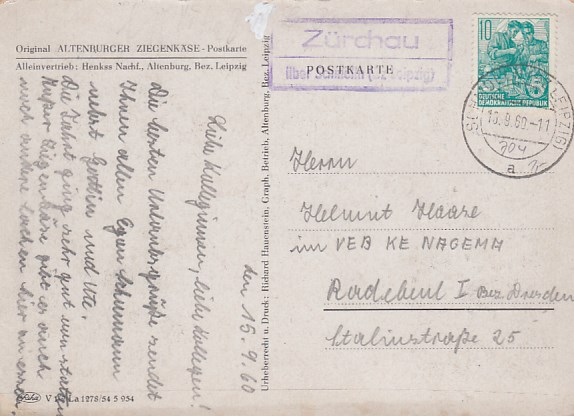 Original ALTENBURGER ZIEGENKÄSE-Postkarte
Alleinvertrieb: Henkss Nachf., Altenburg, Bez. Leipzig
Zürchau
über (Bz. Leipzig)
POSTKARTE
10
DEUTSCHE
DEMOKRATISCHE REPUBLIK
LEIPZIG)
15.9.60.-11
a
den 15.9.60
Liebe Kolleginnen, liebe Kollegen!
Die besten Urlaubsgrüße sendet
Ihnen allen Egon Schumann
nebst Gattin und Ute.
Die Fahrt ging sehr gut vonstatten
Außer Ziegenkäse gibt es auch
noch andere Sachen hier zu essen.
Urheberrecht u. Druck: Richard Hauenstein, Graph. Betrieb, Altenburg, Bez. Leipzig
Herrn
Helmut Haase
im VEB KE NAGEMA
Radebeul I Bez. Dresden
Stalinstraße 25
V La 1278/54 5 954